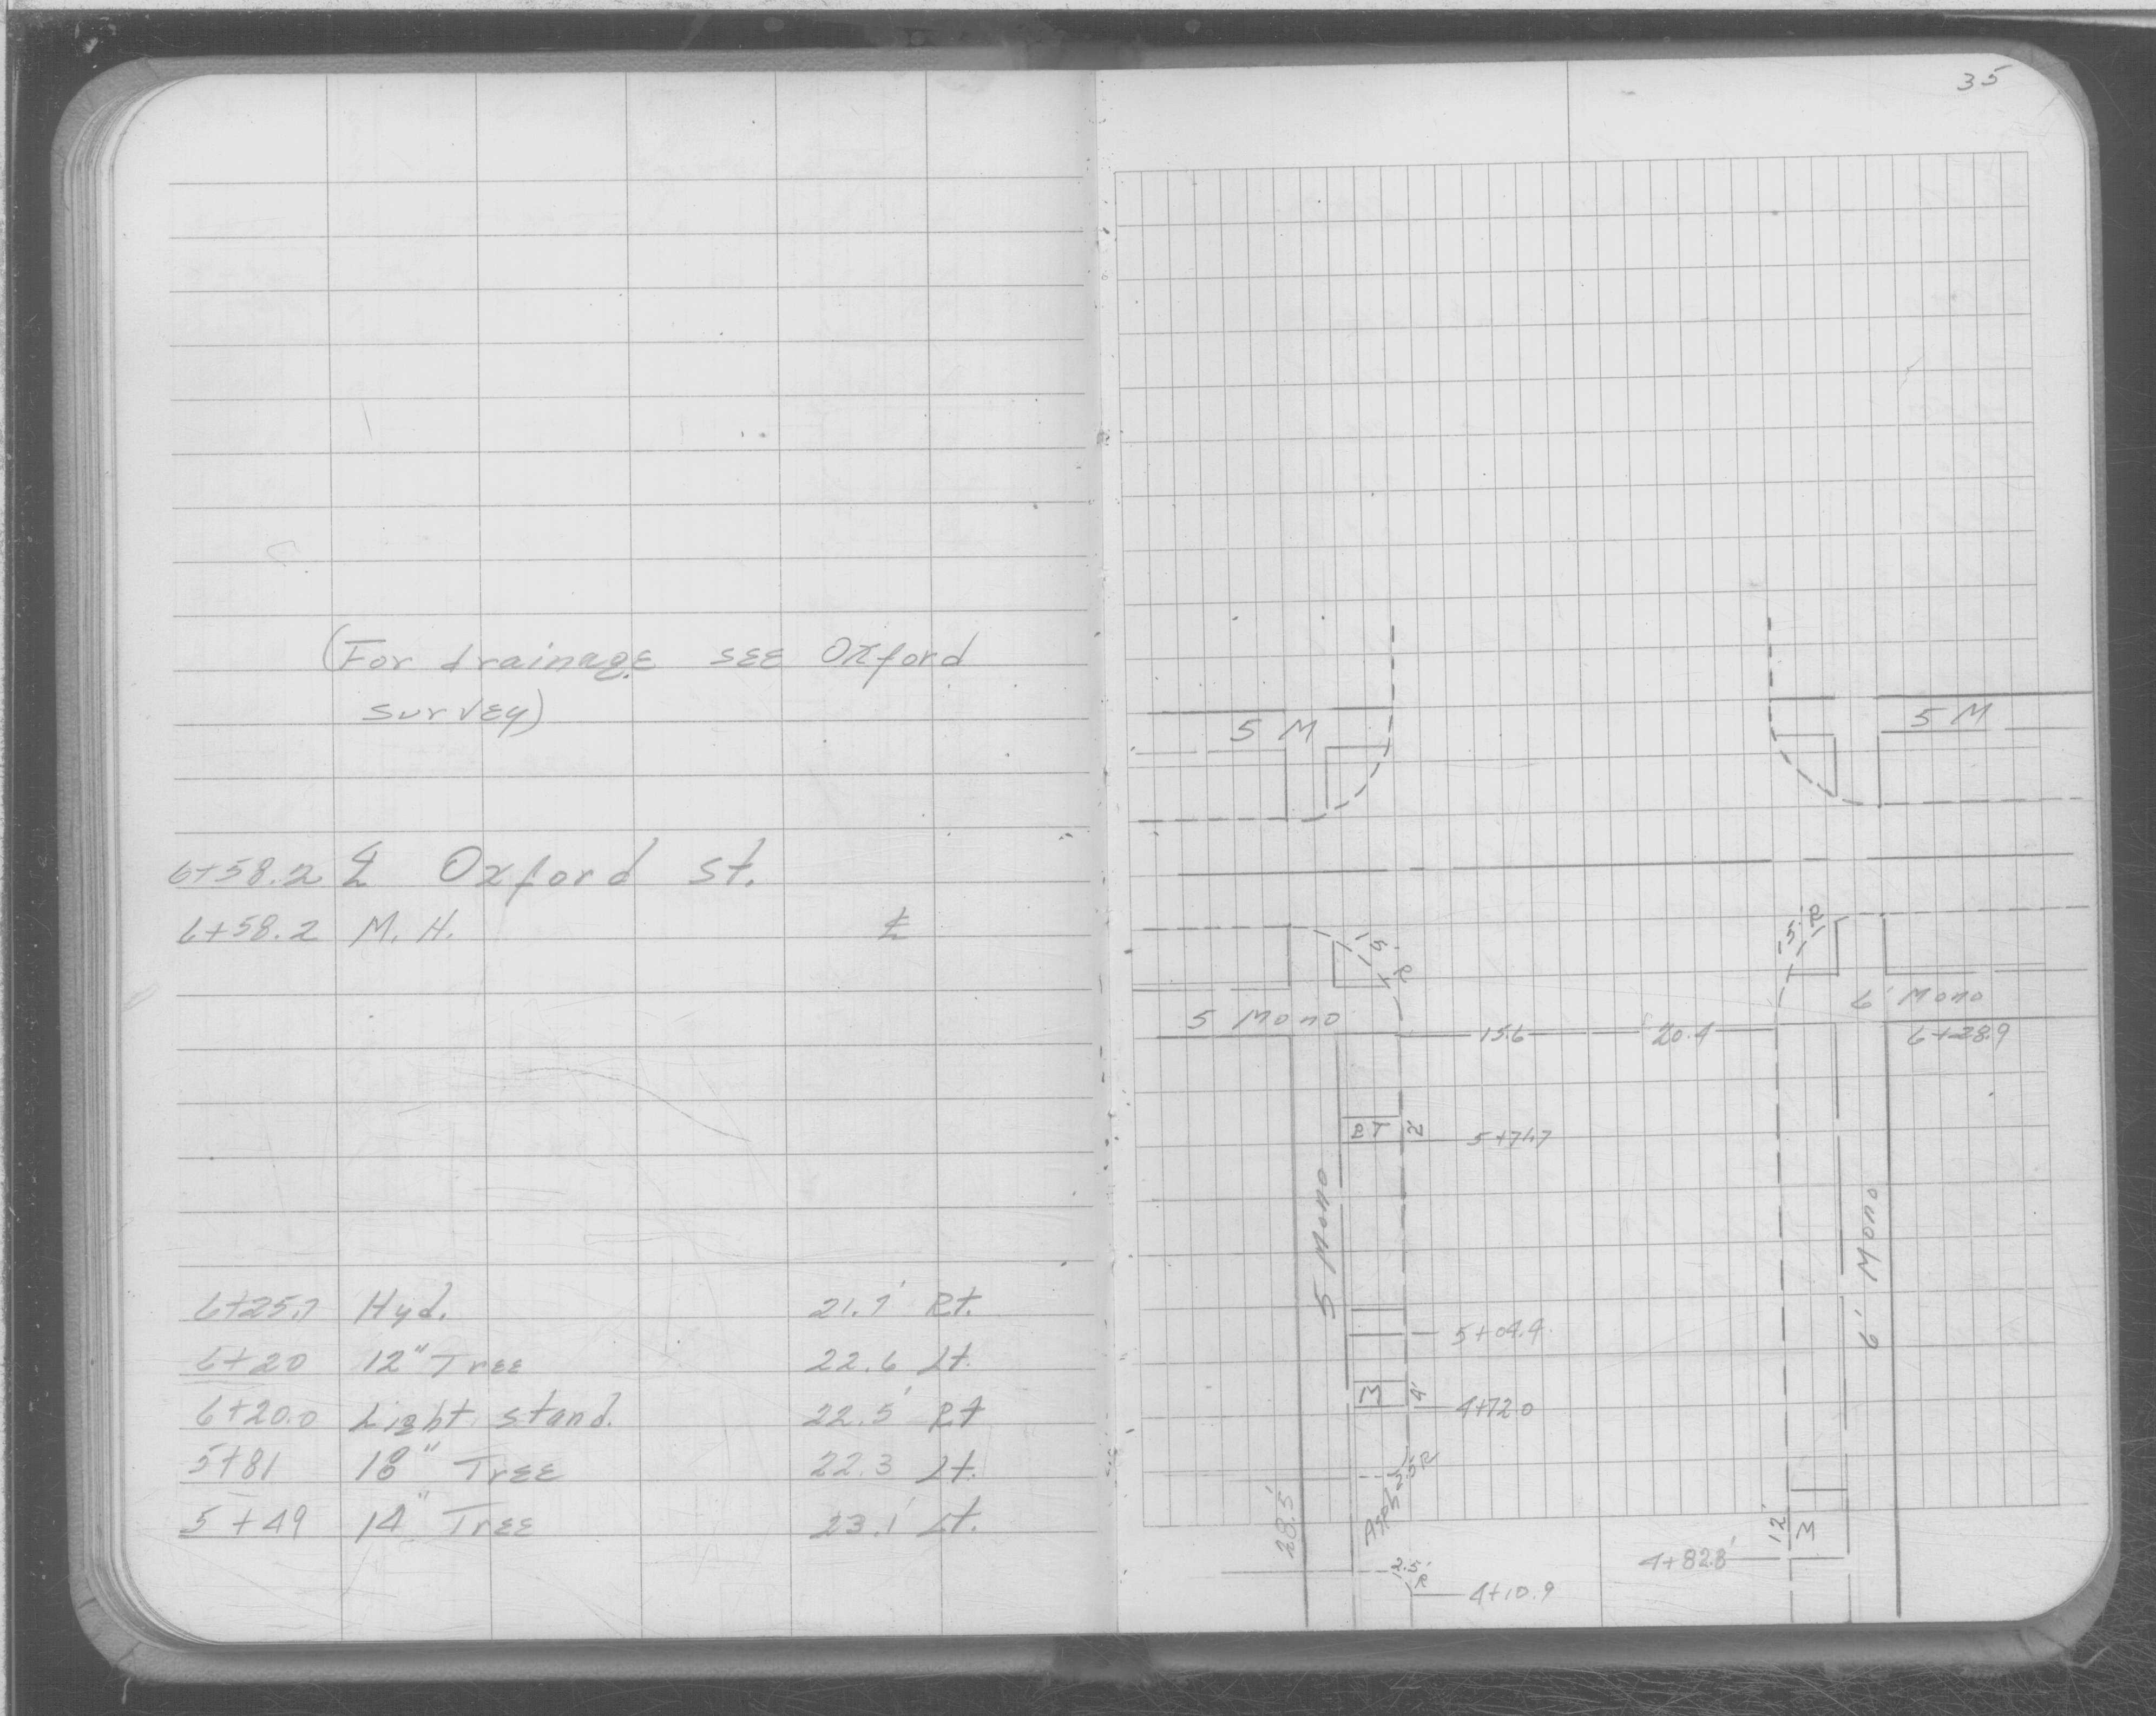 35
(For drainage see Oxford
survey)
6+58.2 ℄ Oxford St.
6+58.2 M. H. ℄
6+25.7 Hyd. 21.7' Rt.
6+20 12" Tree 22.6 Lt.
6+20.0 Light stand. 22.5' Rt
5+81 18" Tree 22.3 Lt.
5+49 14" Tree 23.1' Lt.
5 M
5 M
15' R
15' R
5 Mono
6' Mono
15.6
20.4
6+28.9
2'
5 Mono
6' Mono
5+04.4
M
4'
4+72.0
2.5' R
Asph
28.5'
12'
M
4+82.8'
2.5' R
4+10.9